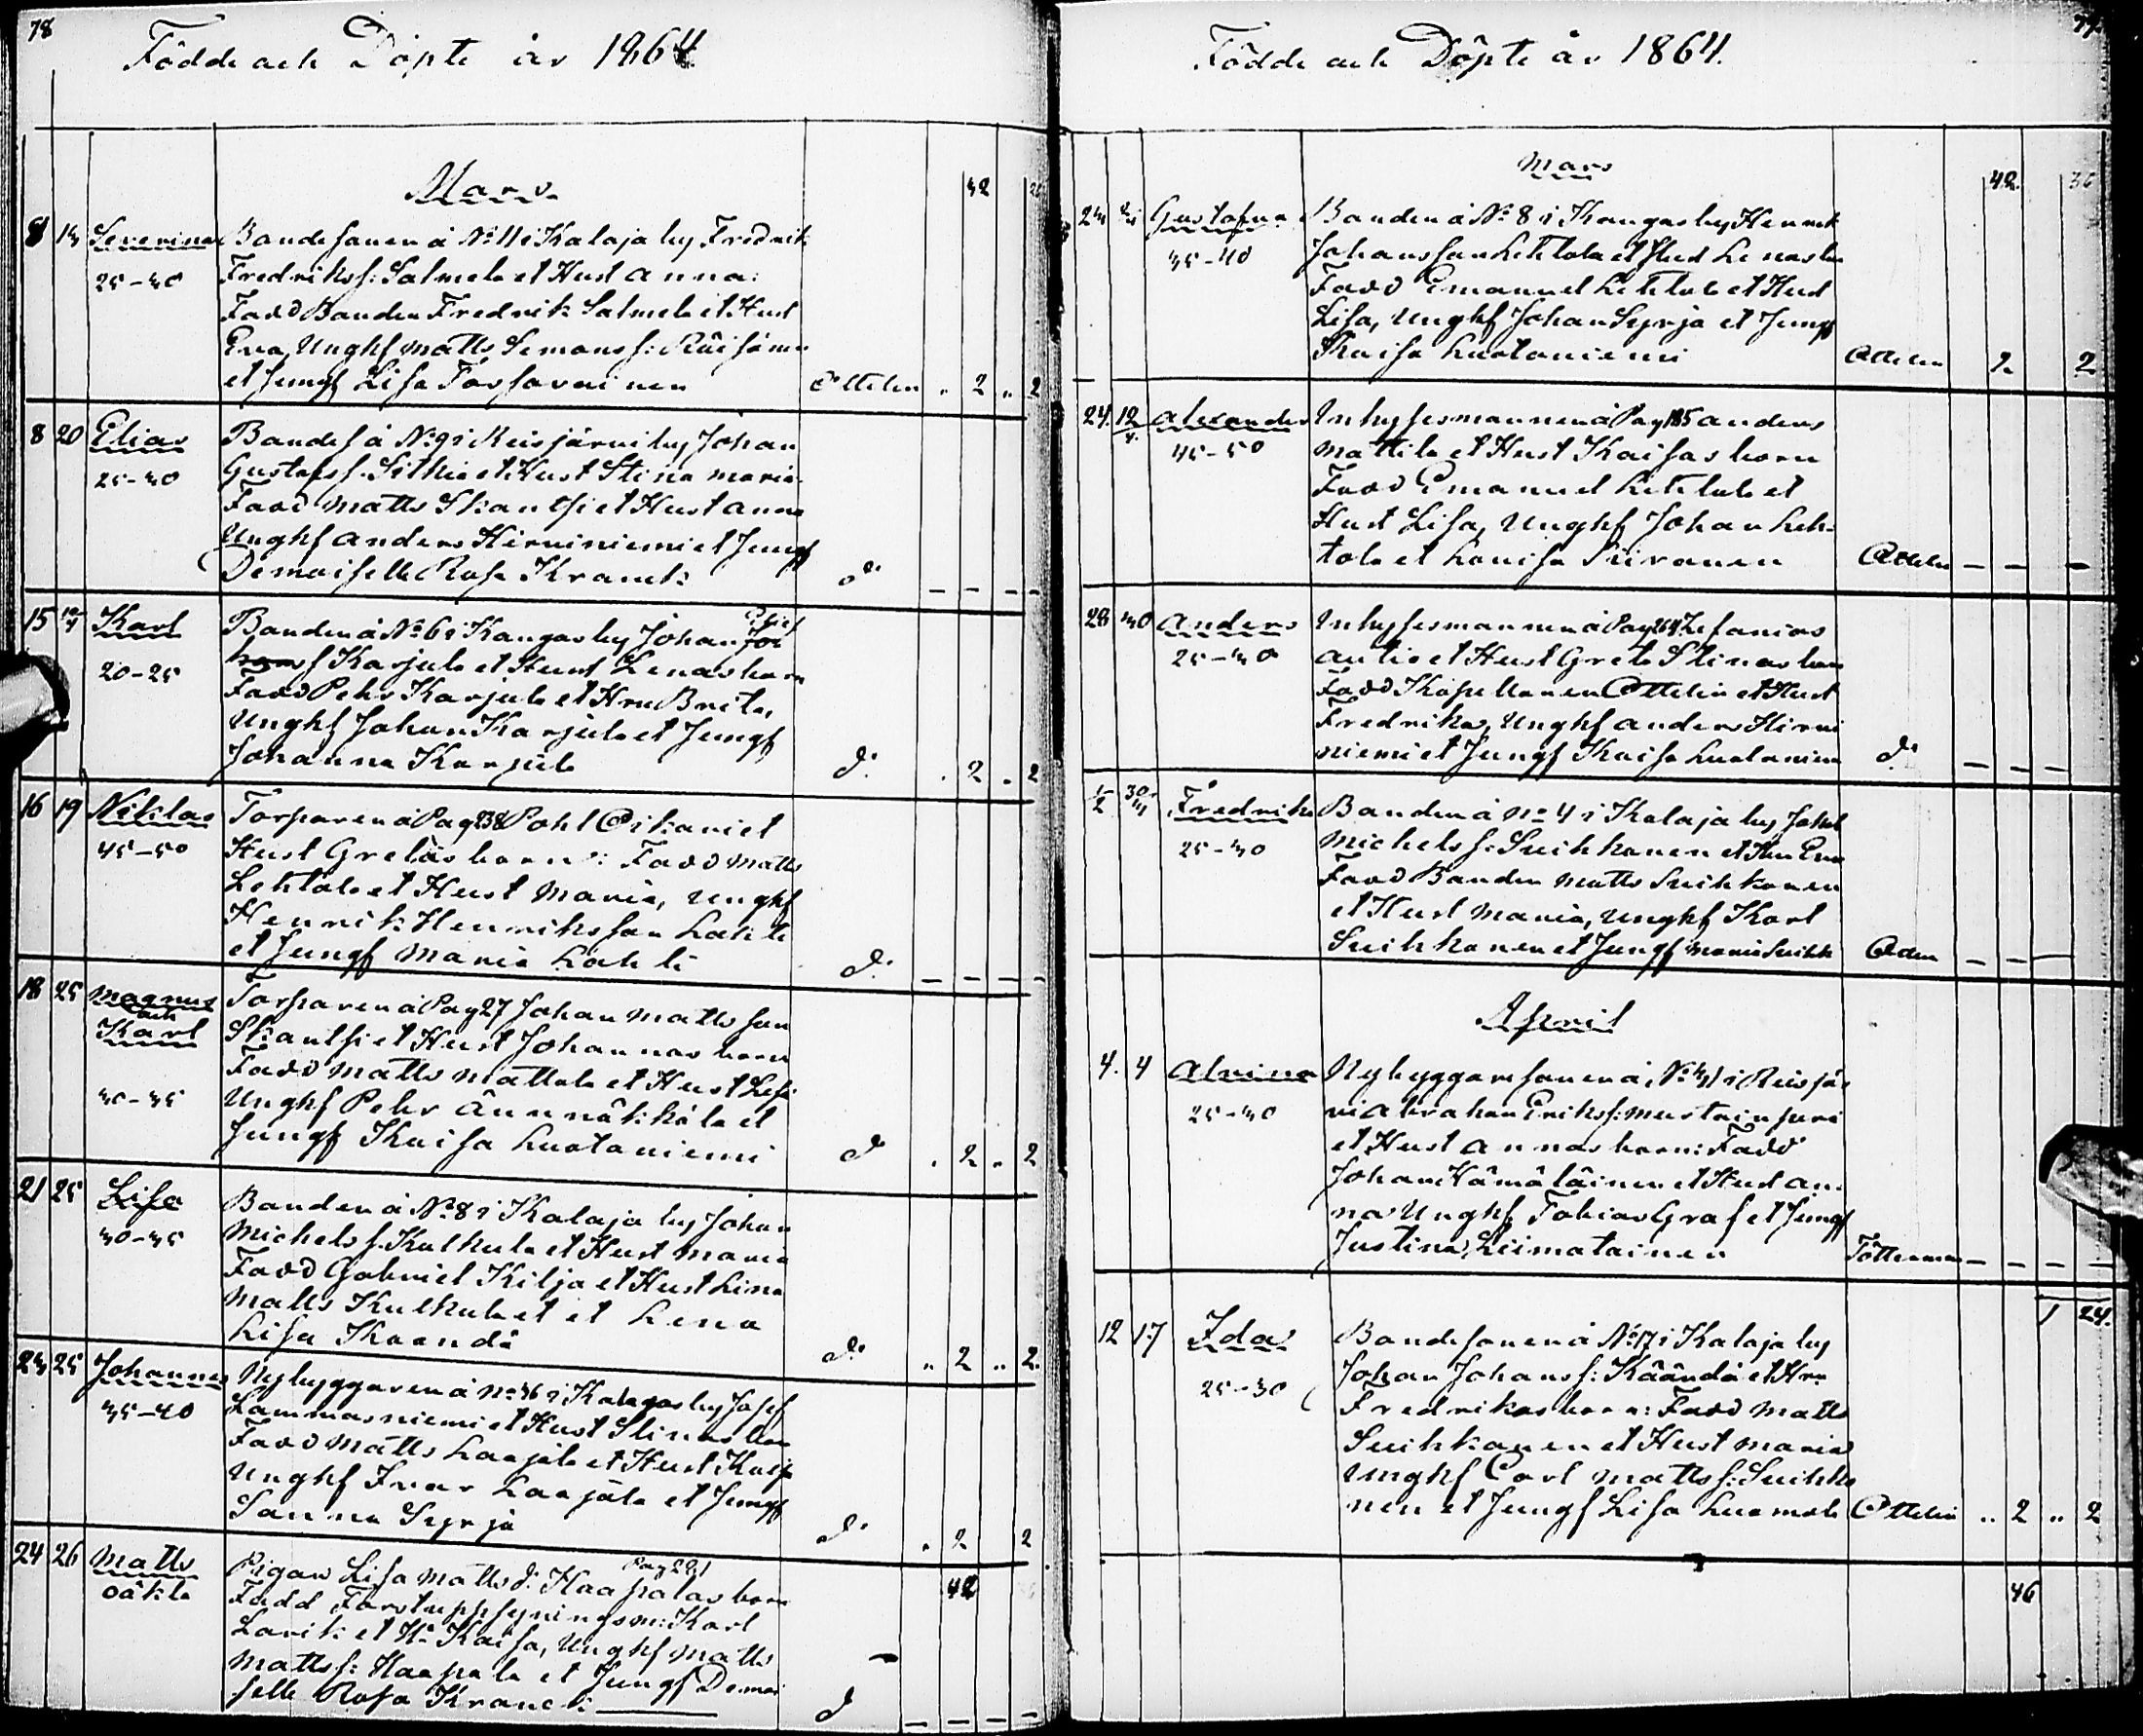 78
Födde och Döpte år 1864
Mars
42
8 13 Severina Bondesonen å No 11 i Kalaja by Fredrik
25-30 Fredrikss: Salmela et Hust Anna:
Fadd Bonden Fredrik Salmela et Hust
Eva, Unghf Matts Simonss: Räisänen
et Jungf Lisa Torsarvainen Ottelin " 2 " 2
8 20 Elias Bondes å No 9 i Reisjärvi by Johan
25-30 Gustafss. et Hust Stina Maria
Fadd Matts Skantsi et Hust Anna
Unghf Anders Hirviniemi et Jungf
Demoiselle Rosa Kranck do – – – –
15 Karl Bonden å No 6 i Kangas by Johan
20-25 Karjula et Hust Lenas barn
Fadd Pehr Karjula et Hru Brita,
Unghf Johan Karjula et Jungf
Johanna Karjula do . 2 . 2
16 19 Niklas Torparen å Pag 238 Pohl Oikari et
45-50 Hust Gretas barn: Fadd Matts
Lehtola et Hust Maria, Unghf
Henrik Henriksson Lahti
et Jungf Maria Lahti do – – – –
18 25 Magnus och Torparen å Pag 27 Johan Mattsson
Karl Skantsi et Hust Johannas barn
Fadd Matts Mattala et Hust Lisa
30-35 Unghf Pehr Ännäkkälä et
Jungf Kaisa Luotaniemi do . 2 . 2
21 25 Lisa Bonden å No 8 i Kalaja by Johan
30-35 Michelss. Kulkula et Hust Maria
Fadd Gabriel Kilja et Hust Lina
Matts Kulkula et et Lena
Lisa Kaandä do .. 2 .. 2.
23 25 Johannes Nybyggaren å No 36 i Kangas by Josef
35-40 Lammasniemi et Hust Stinas barn
Fadd Matts Laajala et Hust Kaisa
Unghf Ivar Laajala et Jungf
Sanna Syrjä do . 2 2
24 26 Matts Pigan Lisa Mattsd: Haapalas barn Pag 221
oäkta Fadd Forstuppsyningsm: Karl
Lavik et Ha Kaisa, Unghf Matts
Mattss: Haapala et Jungf Demoi
selle Rosa Kranck do – – – –
42
Födde och Döpte år 1864.
Mars
42. 36
23 Gustafva Bonden å No 8 i Kangas by Henrik
35-40 Johansson Lehtola et Hust Lenas barn
Fadd Emanuel Lehtola et Hust
Lisa, Unghf Johan Syrjä et Jungf
Kaisa Luotaniemi Ottelin 2 2
24. 12/4. Alexander Inhysesmannen å Pag 185 Anders
45-50 Mattila et Hust Kaisas barn
Fadd Emanuel Lehtola et
Hust Lisa, Unghf Johan Leh-
tola et Lovisa Piironen Ottelin – – –
28 30 Anders Inhysesmannen å Pag 264 Zefanias
25-30 Autio et Hust Greta Stinas barn
Fadd Kapellanen Ottelin et Hust
Fredrika, Unghf Anders Hirvi
niemi et Jungf Kaisa Luotaniemi do – – –
1/2 30/3 Fredrika Bonden å No 4 i Kalaja by Johan
25-30 Michelss: Suihkonen et Hru Eva
Fadd Bonden Matts Suihkonen
et Hust Maria, Unghf Karl
Suihkonen et Jungf Maria Suihk – – –
April
4. 4 Alvina Nybyggaresonen å No 31 i Reisjär
25-30 vi Abraham Erikss: Mustainsuri
et Hust Annas barn: Fadd
Johan Hämäläinen et Hust An
na Unghf Tobias Graf et Jungf
Justina Liimatainen Tötterman – – – –
1 24.
12 17 Ida Bondesonen å No 17 i Kalaja by
25-30 Johan Johanss: Käändä et Hru
Fredrikas barn: Fadd Matts
Suihkonen et Hust Maria
Unghf Carl Mattss: Suihko
nen et Jungf Lisa Luomala Ottelin .. 2 .. 2
46